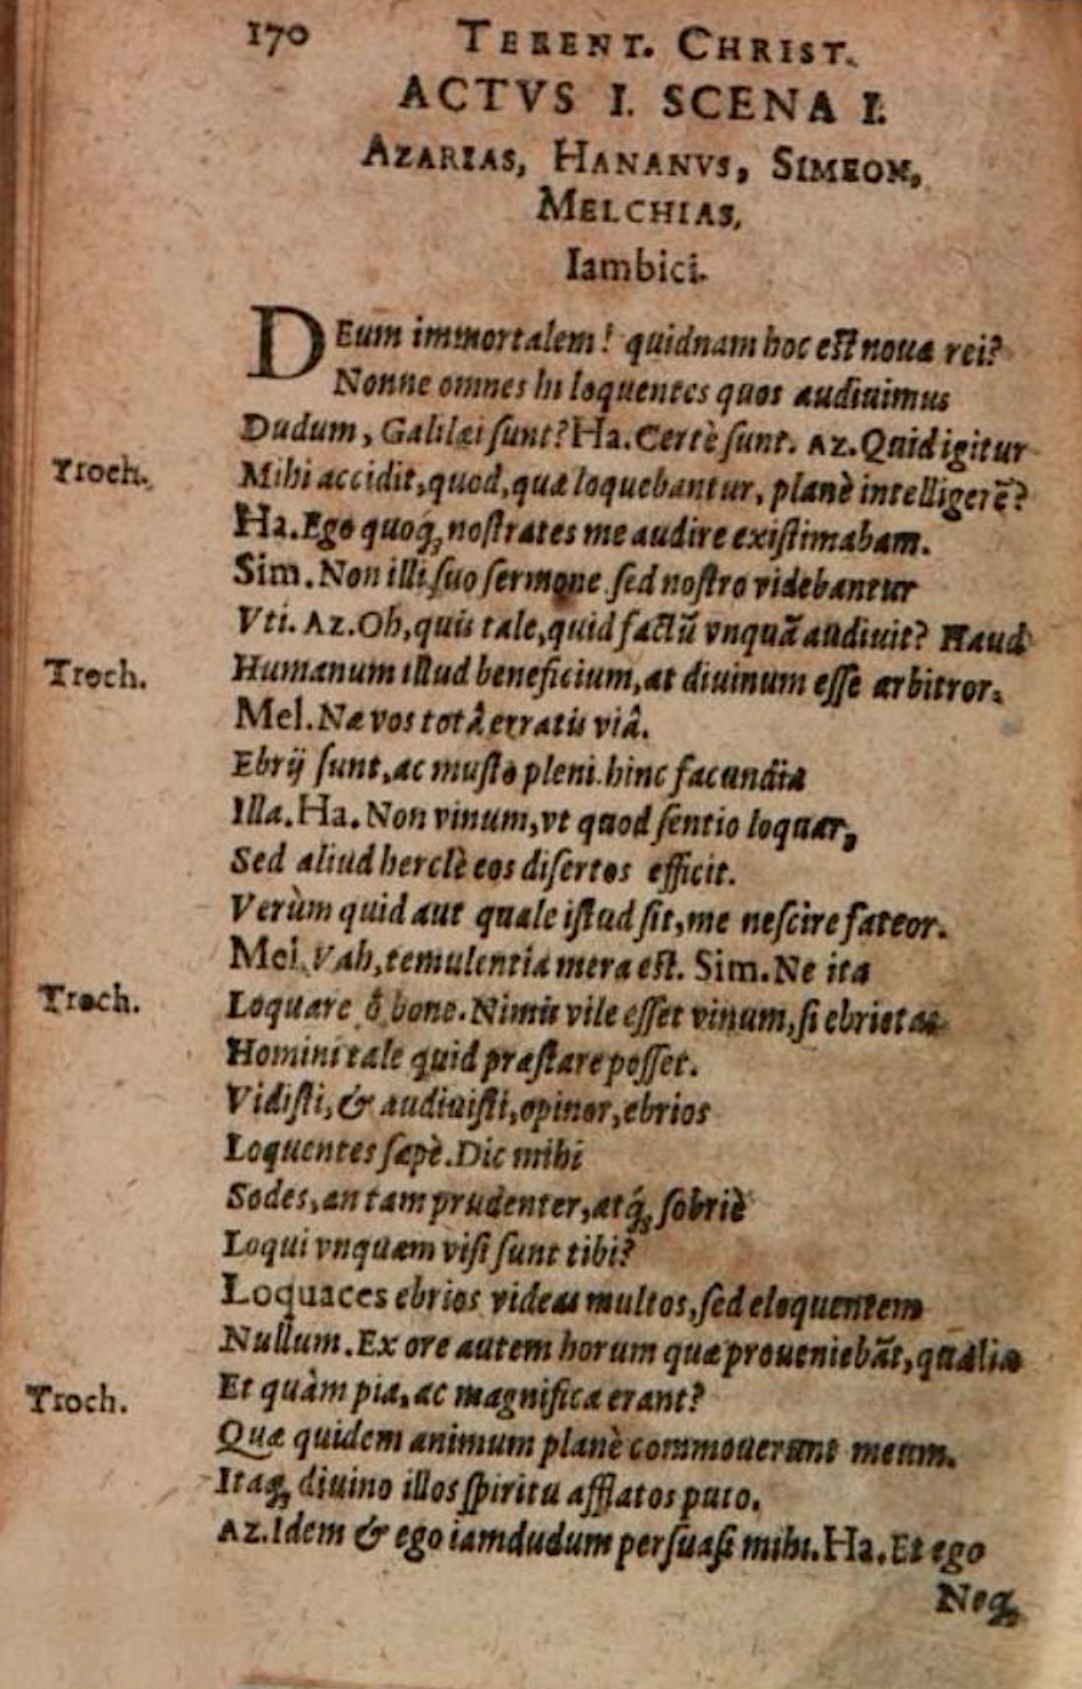 170 TERENT. CHRIST.
ACTVS I. SCENA I.
AZARIAS, HANANVS, SIMEON,
MELCHIAS,
Iambici.
DEum immortalem! quidnam hoc est nouæ rei?
Nonne omnes hi loquentes quos audiuimus
Dudum, Galilæi sunt? Ha. Certè sunt. Az. Quid igitur
Troch. Mihi accidit, quod, quæ loquebantur, planè intelligerē?
Ha. Ego quoq; nostrates me audire existimabam.
Sim. Non illi suo sermone sed nostro videbantur
Vti. Az. Oh, quis tale, quid factū vnquā audiuit? Haud
Troch. Humanum illud beneficium, at diuinum esse arbitror.
Mel. Næ vos totâ erratis viâ.
Ebrij sunt, ac musto pleni. hinc facundia
Illa. Ha. Non vinum, vt quod sentio loquar,
Sed aliud herclè eos disertos efficit.
Verùm quid aut quale istud sit, me nescire fateor.
Mel. Vah, temulentia mera est. Sim. Ne ita
Troch. Loquare ô bone. Nimis vile esset vinum, si ebrietas
Homini tale quid præstare posset.
Vidisti, & audiuisti, opinor, ebrios
Loquentes sæpè. Dic mihi
Sodes, an tam prudenter, atq́; sobriè
Loqui vnquam visi sunt tibi?
Loquaces ebrios videas multos, sed eloquentem
Nullum. Ex ore autem horum quæ proueniebāt, qualia
Troch. Et quàm pia, ac magnifica erant?
Quæ quidem animum planè commouerunt meum.
Itaq; diuino illos spiritu afflatos puto.
Az. Idem & ego iamdudum persuasi mihi. Ha. Et ego
Neq;